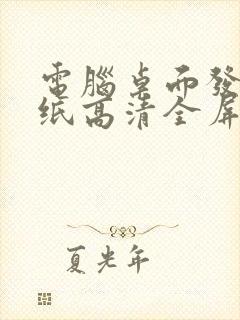 電腦桌面發
纸高清全屏
夏光年